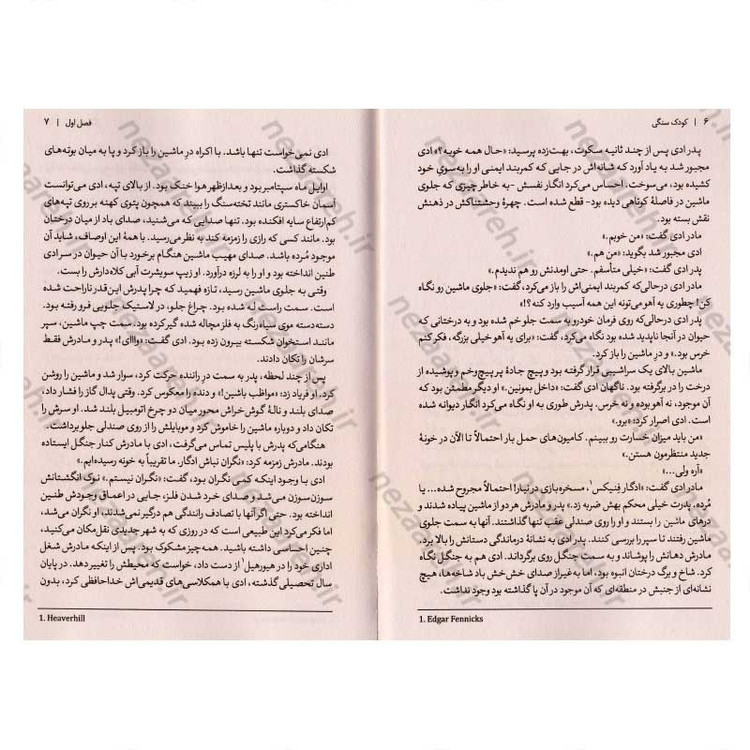 ۶ | کودک سنگی
پدر ادی پس از چند ثانیه سکوت، بهت‌زده پرسید: «حال همه خوبه؟» ادی
مجبور شد به یاد آورد که شانه‌اش در جایی که کمربند ایمنی او را به‌سوی خود
کشیده بود، می‌سوخت. احساس می‌کرد انگار نفسش -به خاطر چیزی که جلوی
ماشین در فاصلهٔ کوتاهی دیده بود- قطع شده است. چهرهٔ وحشتناکش در ذهنش
نقش بسته بود.
مادر ادی گفت: «من خوبم.»
ادی مجبور شد بگوید: «من هم.»
پدر ادی گفت: «خیلی متأسفم. حتی اومدنش رو هم ندیدم.»
مادر ادی درحالی‌که کمربند ایمنی‌اش را باز می‌کرد، گفت: «جلوی ماشین رو نگاه
کن! چطوری یه آهو می‌تونه این همه آسیب وارد کنه؟!»
پدر ادی درحالی‌که روی فرمان خودرو به سمت جلو خم شده بود و به درختانی که
حیوان در آنجا ناپدید شده بود نگاه می‌کرد، گفت: «برای یه آهو خیلی بزرگه، فکر کنم
خرس بود.» و درِ ماشین را باز کرد.
ماشین بالای یک سراشیبی قرار گرفته بود و پیچ جادهٔ پر پیچ‌وخم و پوشیده از
درخت را در برگرفته بود. ناگهان ادی گفت: «داخل بمونین.» او دیگر مطمئن بود که
آن موجود، نه آهو بوده و نه خرس. پدرش طوری به او نگاه می‌کرد انگار دیوانه شده
است. ادی اصرار کرد: «برو.»
«من باید میزان خسارت رو ببینم. کامیون‌های حمل بار احتمالاً تا الآن در خونهٔ
جدید منتظرمون هستن.»
«آره ولی...»
مادر ادی گفت: «ادگار فنیکس۱، مسخره‌بازی در نیار! احتمالاً مجروح شده... یا
مُرده. پدرت خیلی محکم بهش ضربه زد.» پدر و مادرش هر دو از ماشین پیاده شدند و
درهای ماشین را بستند و او را روی صندلی عقب تنها گذاشتند. آنها به سمت جلوی
ماشین رفتند تا سپر را بررسی کنند. پدر ادی به نشانهٔ درماندگی دستانش را بالا برد.
مادرش دهانش را پوشاند و به سمت جنگل روی برگرداند. ادی هم به جنگل نگاه
کرد. شاخ و برگ درختان انبوه بود، اما به‌غیراز صدای خش‌خش باد شاخه‌ها، هیچ
نشانه‌ای از جنبش در منطقه‌ای که آن موجود در آن پا گذاشته بود وجود نداشت.
1. Edgar Fennicks
فصل اول | ۷
ادی نمی‌خواست تنها باشد. با اکراه درِ ماشین را باز کرد و پا به میان بوته‌های
شکسته گذاشت.
اوایل ماه سپتامبر بود و بعدازظهر هوا خنک بود. از بالای تپه، ادی می‌توانست
آسمان خاکستری مانند تخته‌سنگ را ببیند که همچون پتوی کهنه بر روی تپه‌های
کم‌ارتفاع سایه افکنده بود. تنها صدایی که می‌شنید، صدای باد از میان درختان
بود. مانند کسی که رازی را زمزمه کند به نظر می‌رسید. با همهٔ این اوصاف، شاید آن
موجود مُرده باشد. صدای مهیب ماشین هنگام برخورد با آن حیوان در سر ادی
طنین انداخته بود و او را به لرزه درآورد. او زیپ سویشرت آبی کلاه‌دارش را بست.
وقتی به جلوی ماشین رسید، تازه فهمید که چرا پدرش این‌قدر ناراحت شده
است. سمت راست له شده بود. چراغ جلو، در لاستیک جلویی فرو رفته بود.
دسته‌دسته موی سیاه‌رنگ به فلز مچاله شده گیر کرده بود. سمت چپ ماشین، سپر
مانند استخوان شکسته بیرون زده بود. ادی گفت: «وااای!» پدر و مادرش فقط
سرشان را تکان دادند.
پس از چند لحظه، پدر به سمت درِ راننده حرکت کرد، سوار شد و ماشین را روشن
کرد. او فریاد زد: «مواظب باشین!» و دنده را معکوس کرد. وقتی پدال گاز را فشار داد،
صدای بلند و نالهٔ گوش‌خراش محور میان دو چرخ اتومبیل بلند شد. او سرش را
تکان داد و دوباره ماشین را خاموش کرد و موبایلش را از روی صندلی جلو برداشت.
هنگامی‌که پدرش با پلیس تماس می‌گرفت، ادی با مادرش کنار جنگل ایستاده
بودند. مادرش زمزمه کرد: «نگران نباش ادگار. ما تقریباً به خونه رسیده‌ایم.»
ادی با وجود اینکه کمی نگران بود، گفت: «نگران نیستم.» نوک انگشتانش
سوزن‌سوزن می‌شد و صدای خرد شدن فلز، جایی در اعماق وجودش طنین
انداخته بود. حتی اگر آنها با تصادف رانندگی هم درگیر نمی‌شدند، او نگران می‌شد،
اما فکر می‌کرد این طبیعی است که در روزی که به شهر جدیدی نقل‌مکان می‌کنید،
چنین احساسی داشته باشید. همه چیز مشکوک بود. پس از اینکه مادرش شغل
اداری خود را در هیورهیل۱ از دست داد، خواست که محیطش را تغییر دهد. در پایان
سال تحصیلی گذشته، ادی با همکلاسی‌های قدیمی‌اش خداحافظی کرد، بدون
1. Heaverhill
nezaareh.ir